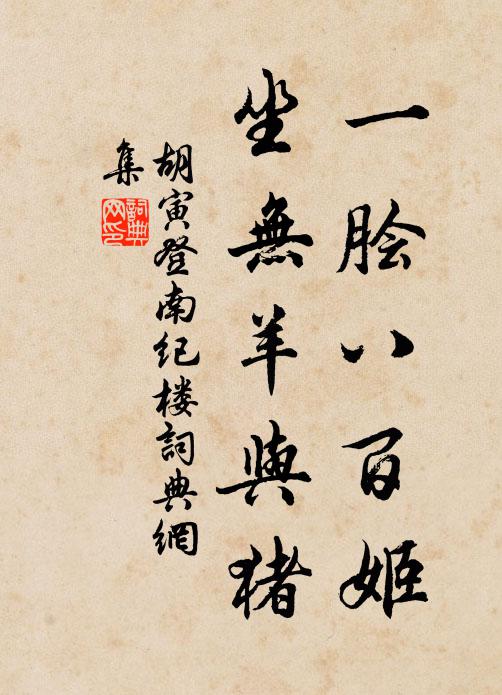 一脍八百姬
坐無羊與猪
胡寅登南纪楼詞典網
集
詞典
网印